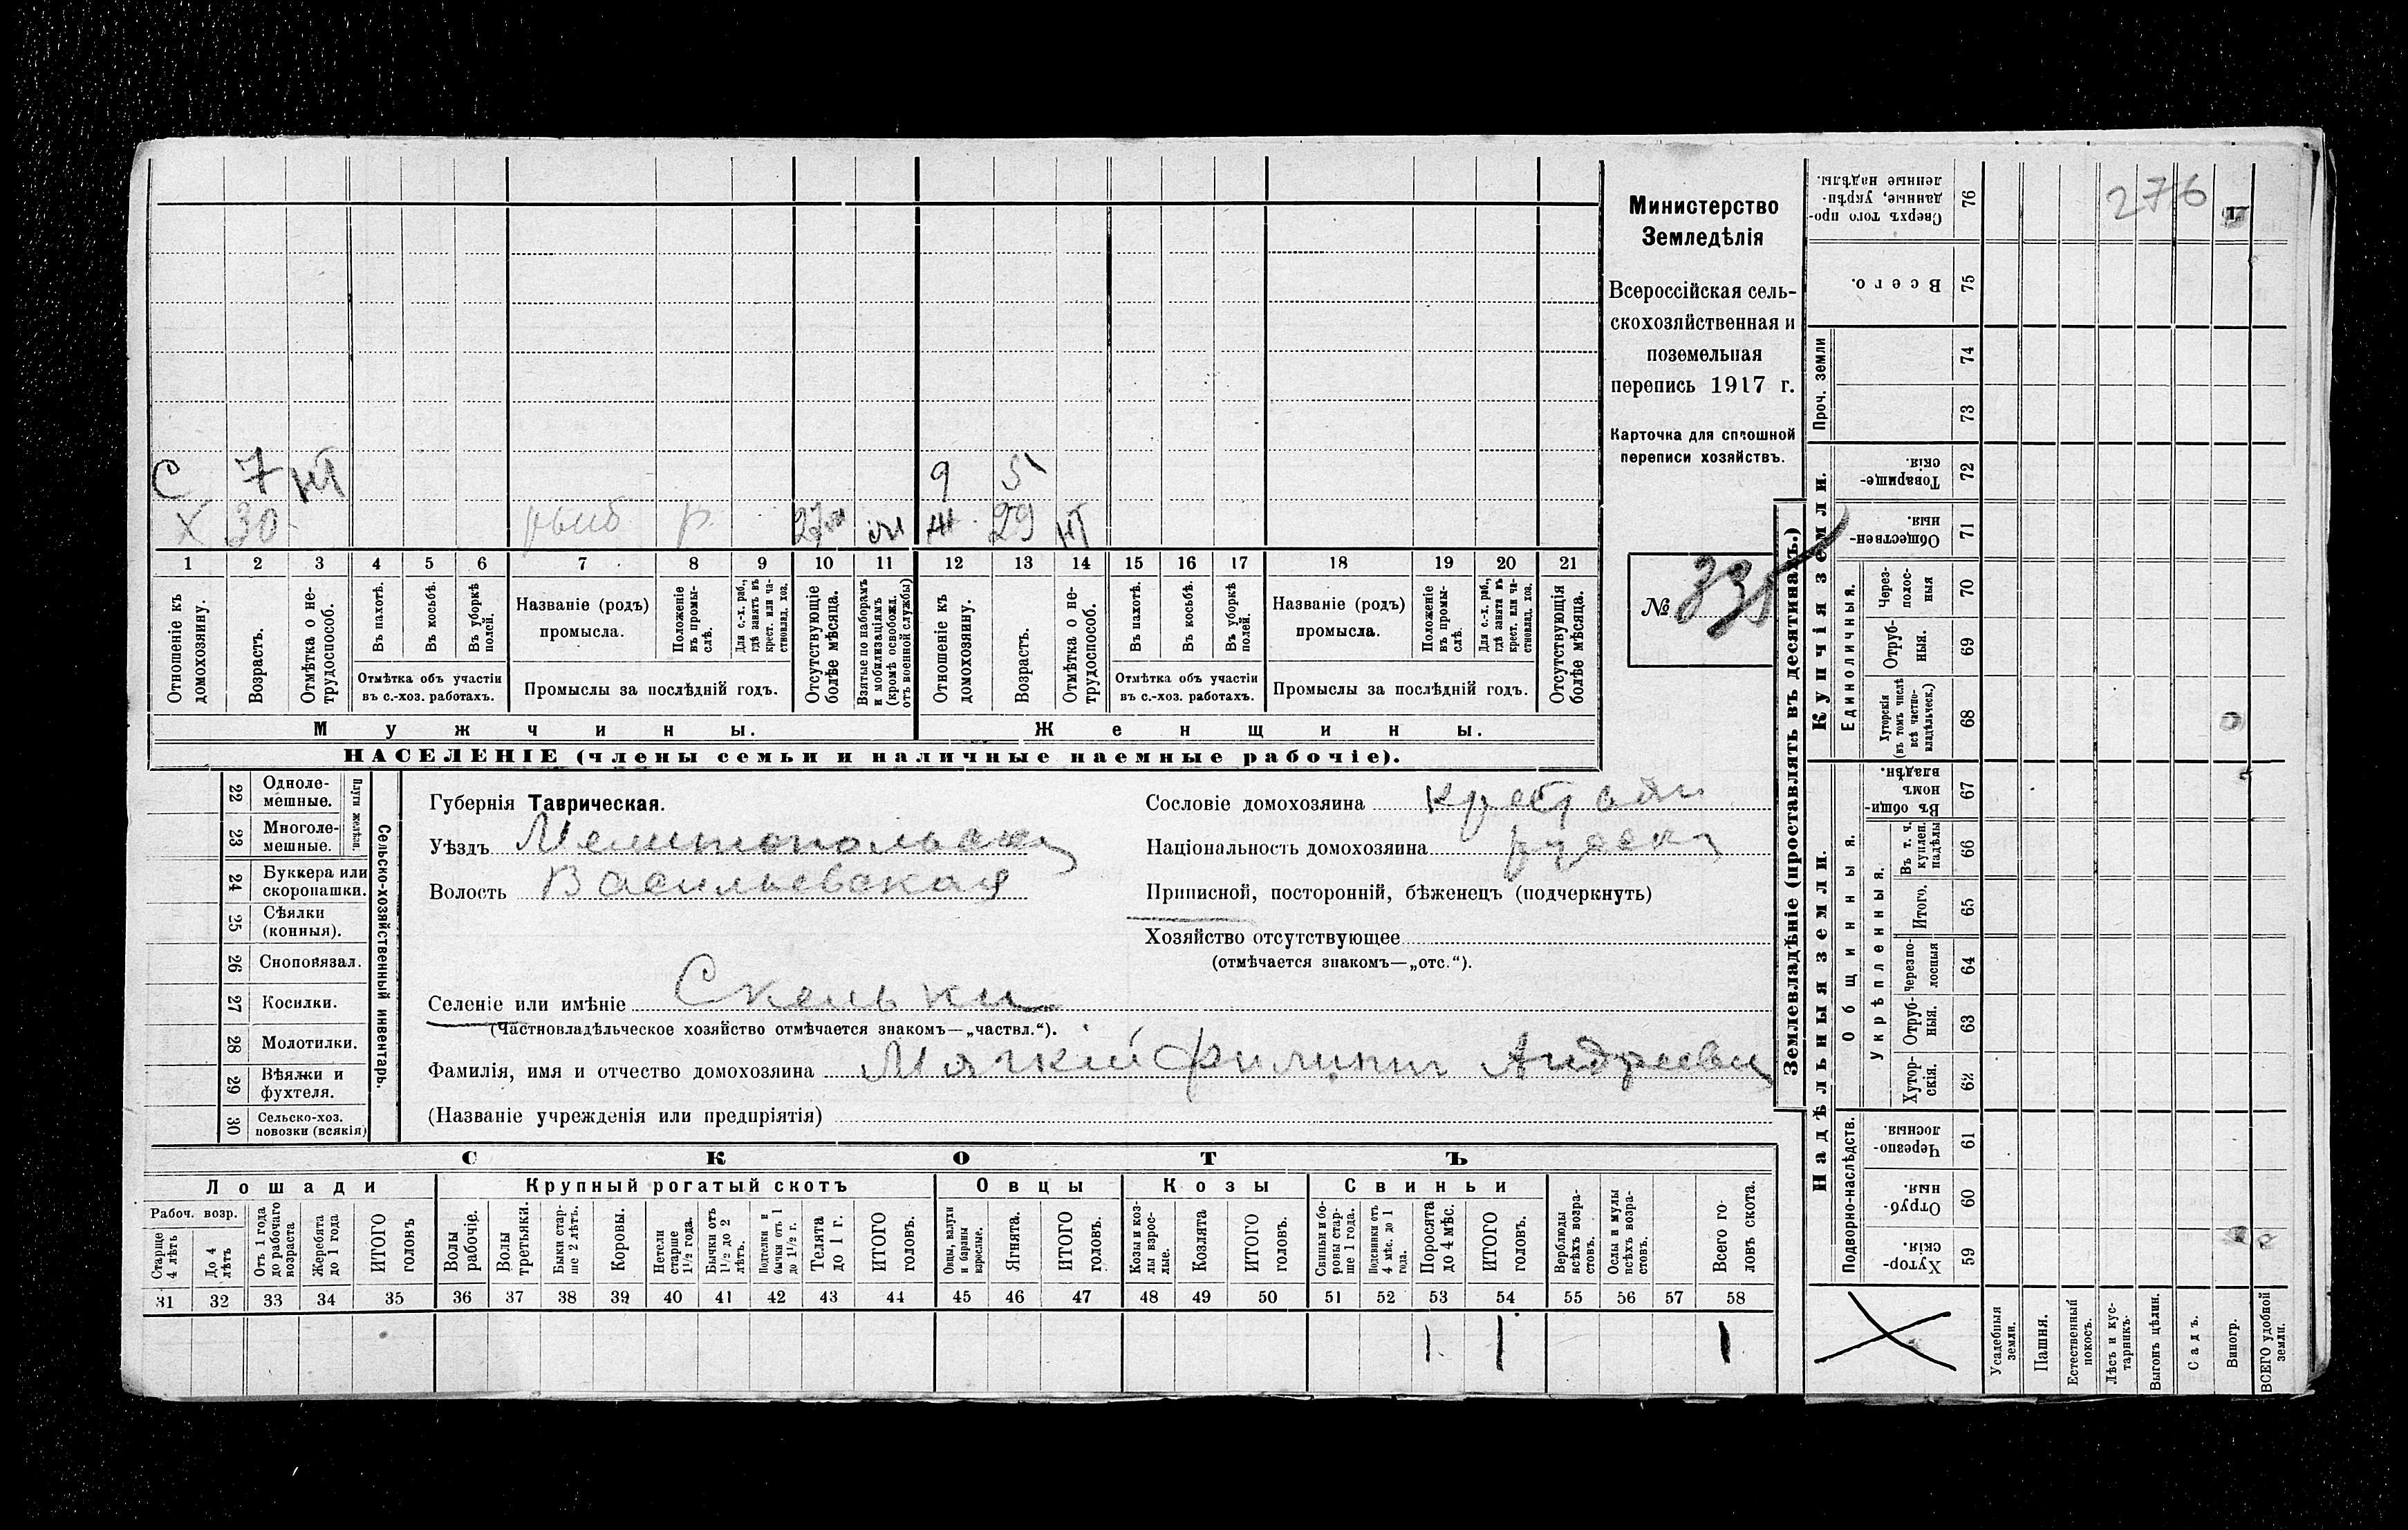 276
Министерство
Земледѣлія
Всероссійская сель-
скохозяйственная и
поземельная
перепись 1917 г.
Карточка для сплошной
переписи хозяйствъ.
№ 335
С 7 нт 9 5
Х 30 рыб р. ж 29 нт
1 2 3 4 5 6 7 8 9 10 11 12 13 14 15 16 17 18 19 20 21
Отношеніе къ домохозяину.
Возрастъ.
Отмѣтка о не-трудоспособ.
Въ пахотѣ.
Въ косьбѣ.
Въ уборкѣ полей.
Отмѣтка объ участіи
въ с.-хоз. работахъ.
Названіе (родъ)
промысла.
Положеніе въ промы-слѣ.
Для с.-х. раб., гдѣ занятъ въ крест. или ча-стновлад. хоз.
Промыслы за послѣдній годъ.
Отсутствующіе болѣе мѣсяца.
Взятые по наборамъ и мобилизаціямъ (кромѣ освобожд. отъ военной службы)
Отношеніе къ домохозяину.
Возрастъ.
Отмѣтка о не-трудоспособ.
Въ пахотѣ.
Въ косьбѣ.
Въ уборкѣ полей.
Отмѣтка объ участіи
въ с.-хоз. работахъ.
Названіе (родъ)
промысла.
Положеніе въ промы-слѣ.
Для с.-х. раб., гдѣ занята въ крест. или ча-стновлад. хоз.
Промыслы за послѣдній годъ.
Отсутствующія болѣе мѣсяца.
Мужчины. Женщины.
НАСЕЛЕНІЕ (члены семьи и наличные наемные рабочіе).
Сельско-хозяйственный инвентарь.
Плуги желѣзн.
22 Одноле-мешные.
23 Многоле-мешные.
24 Буккера или скоропашки.
25 Сѣялки (конныя).
26 Сноповязал.
27 Косилки.
28 Молотилки.
29 Вѣялки и фухтеля.
30 Сельско-хоз. повозки (всякія)
Губернія Таврическая.
Уѣздъ Мелитопольскій
Волость Васильевская
Селеніе или имѣніе Скельки
(Частновладѣльческое хозяйство отмѣчается знакомъ—„частвл.“).
Фамилія, имя и отчество домохозяина Мягкій Филиппъ Андреевич
(Названіе учрежденія или предпріятія)
Сословіе домохозяина крестьян
Національность домохозяина русскі
Приписной, посторонній, бѣженецъ (подчеркнуть)
Хозяйство отсутствующее
(отмѣчается знакомъ—„отс.“).
СКОТЪ
Лошади Крупный рогатый скотъ Овцы Козы Свиньи
Рабоч. возр.
Старше 4 лѣтъ
До 4 лѣтъ
Отъ 1 года до рабочаго возраста
Жеребята до 1 года
ИТОГО головъ
Волы рабочіе.
Волы третьяки.
Быки стар-ше 2 лѣтъ.
Коровы.
Нетели старше 1½ года.
Бычки отъ 1½ до 2 лѣтъ.
Подтелки и бычки отъ 1 до 1½ г.
Телята до 1 г.
ИТОГО головъ.
Овцы, валухи и бараны взрослые.
Ягнята.
ИТОГО головъ.
Козы и коз-лы взрос-лые.
Козлята
ИТОГО головъ.
Свиньи и бо-ровы стар-ше 1 года.
Подсвинки отъ 4 мѣс. до 1 года.
Поросята до 4 мѣс.
ИТОГО головъ.
Верблюды всѣхъ возра-стовъ.
Ослы и мулы всѣхъ возра-стовъ.
Всего го-ловъ скота.
31 32 33 34 35 36 37 38 39 40 41 42 43 44 45 46 47 48 49 50 51 52 53 54 55 56 57 58
1 1 1
Землевладѣніе (проставлять въ десятинахъ.)
Надѣльныя земли. Купчія земли.
Подворно-наслѣдств.
Общинныя.
Укрѣпленныя.
Единоличныя.
Проч. земли
Хутор-скія. 59
Отруб-ныя. 60
Черезпо-лосныя. 61
Хутор-скія. 62
Отруб-ныя. 63
Черезпо-лосныя 64
Итого. 65
Въ т. ч. куплен. надѣлы 66
Въ общин-номъ владѣн. 67
Хуторскія (въ томъ числѣ всѣ частно-владѣльческ.) 68
Отруб-ныя. 69
Через-полос-ныя 70
Обществен-ныя. 71
Товарище-скія. 72
73
74
Всего. 75
Сверхъ того про-данные, укрѣп-ленные надѣлы. 76
Усадебныя земли.
Пашня.
Естественный покосъ.
Лѣсъ и кус-тарникъ.
Выгонъ цѣлин.
Садъ.
Виногр.
ВСЕГО удобной земли.